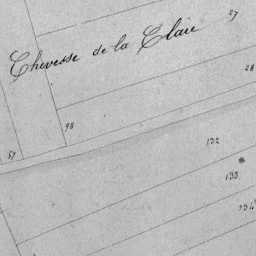 27
Chevesse de la Claie
28
98
57
132
133
134